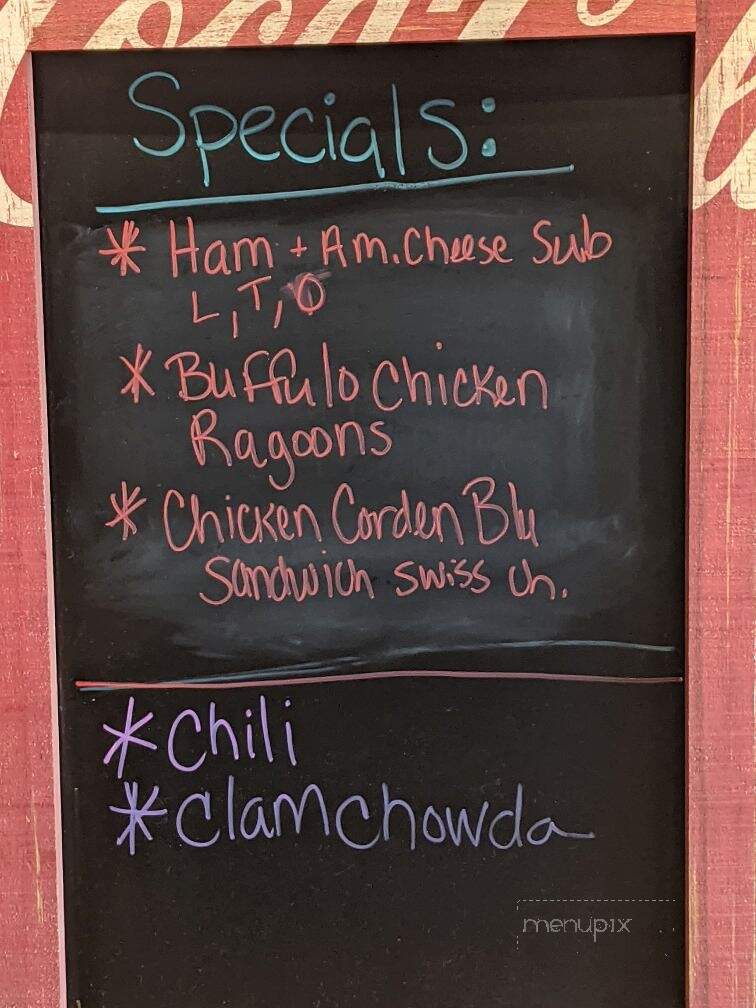 Specials:
* Ham + Am. Cheese Sub
L, T, O
* Buffulo Chicken
Ragoons
* Chicken Corden Blu
Sandwich swiss ch.
* Chili
* Clam Chowda
menupix